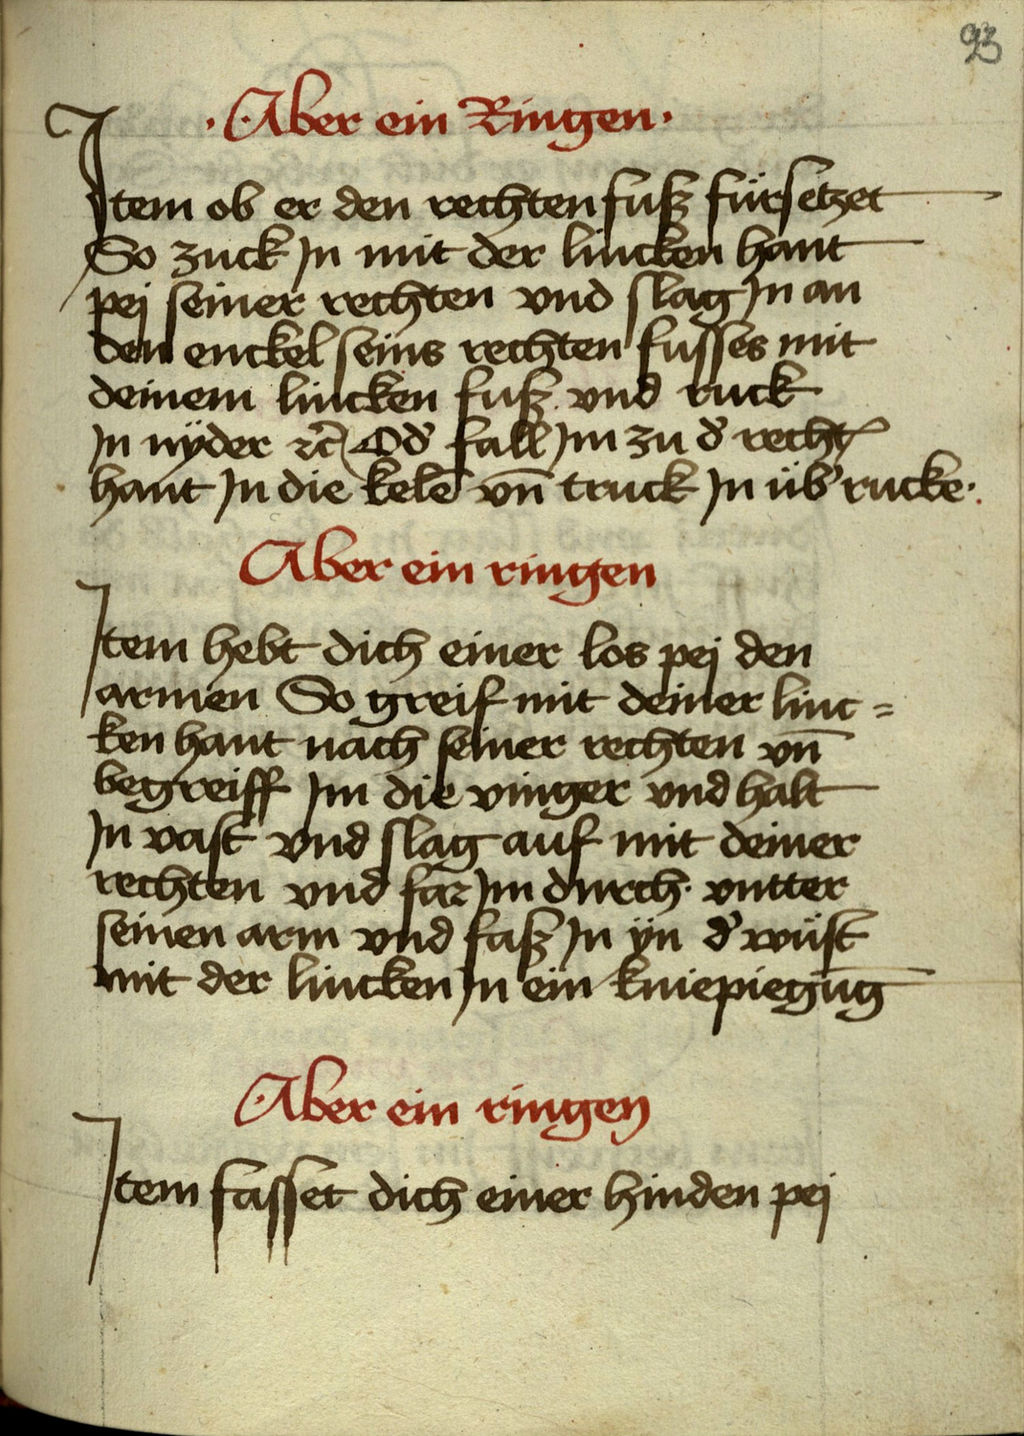 93
·Aber ein Ringen·
Item ob er den rechten fusz fürsetzet
So zuck Jn mit der lincken hant
pej seiner rechten vnd slag Jn an
den enckel seins rechten fusses mit
deinem lincken fusz vnd ruck
Jn nÿder ꝛc̄ Od' fall Jm zu d' recht̄
hant Jn die kele vn̄ truck Jn üb' rucke·
Aber ein ringen
Item hebt dich einer los pej den
armen So greif mit deiner linc=
ken hant nach seiner rechten vn̄
begreiff Jm die vinger vnd halt
Jn vast vnd slag auf mit deiner
rechten vnd far Jm durch· vntter
seinen arm vnd fasz Jn ÿn d' wüst
mit der lincken Jn ein kniepiegūg
Aber ein ringen
Item fasset dich einer hinden pej